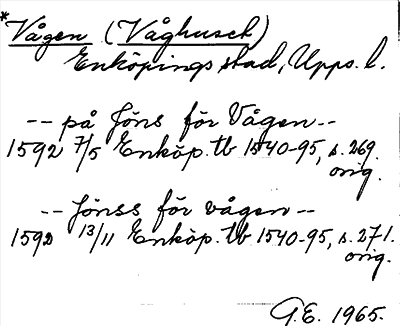 *Vågen (Våghuset)
Enköpings stad, Upps. l.
-- på Jöns för Vågen --
1592 7/5 Enköp. tb 1540-95, s. 269.
orig.
-- Jönss för vågen --
1592 13/11 Enköp. tb 1540-95, s. 271.
orig.
G.E. 1965.